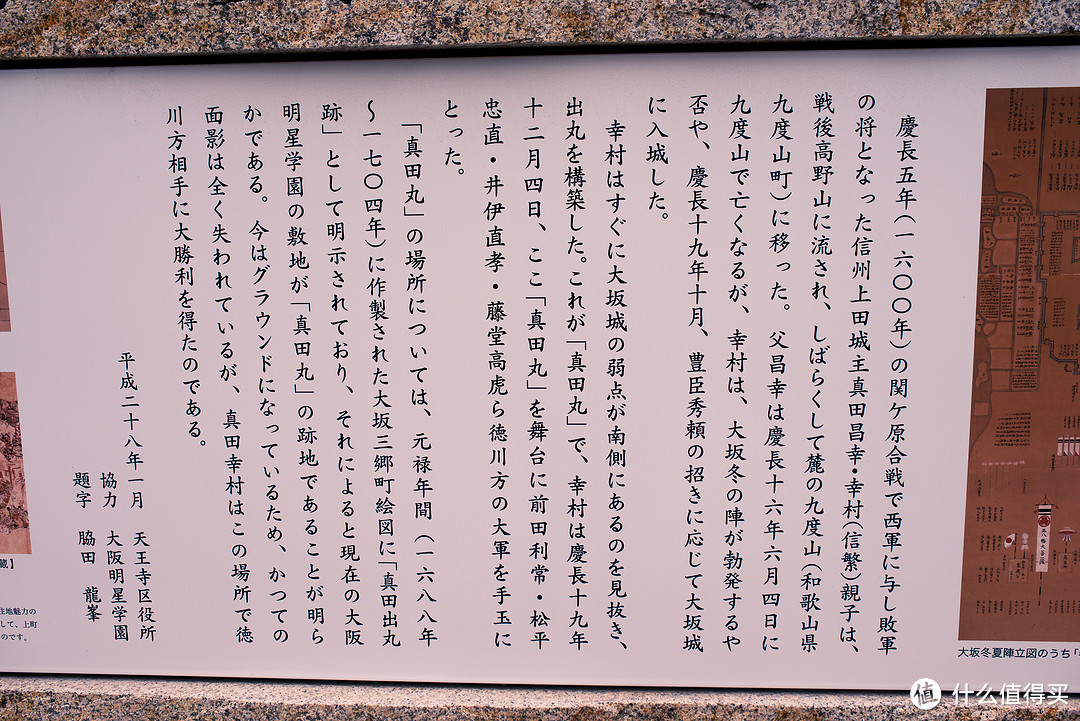 慶長五年(一六〇〇年)の関ケ原合戦で西軍に与し敗軍
の将となった信州上田城主真田昌幸・幸村(信繁)親子は、
戦後高野山に流され、しばらくして麓の九度山(和歌山県
九度山町)に移った。父昌幸は慶長十六年六月四日に
九度山で亡くなるが、幸村は、大坂冬の陣が勃発するや
否や、慶長十九年十月、豊臣秀頼の招きに応じて大坂城
に入城した。
幸村はすぐに大坂城の弱点が南側にあるのを見抜き、
出丸を構築した。これが「真田丸」で、幸村は慶長十九年
十二月四日、ここ「真田丸」を舞台に前田利常・松平
忠直・井伊直孝・藤堂高虎ら徳川方の大軍を手玉に
とった。
「真田丸」の場所については、元禄年間(一六八八年
～一七〇四年)に作製された大坂三郷町絵図に「真田出丸
跡」として明示されており、それによると現在の大阪
明星学園の敷地が「真田丸」の跡地であることが明ら
かである。今はグラウンドになっているため、かつての
面影は全く失われているが、真田幸村はこの場所で徳
川方相手に大勝利を得たのである。
平成二十八年一月 天王寺区役所
協力 大阪明星学園
題字 脇田 龍峯
大坂冬夏陣立図のうち「
蔵】
主地魅力の
して、上町
のです。
值 什么值得买